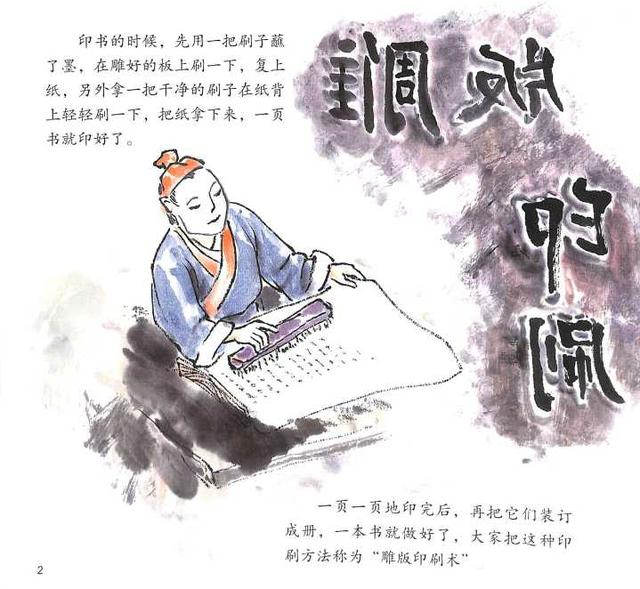 印书的时候，先用一把刷子蘸
了墨，在雕好的板上刷一下，复上
纸，另外拿一把干净的刷子在纸背
上轻轻刷一下，把纸拿下来，一页
书就印好了。
雕版
印
刷
一页一页地印完后，再把它们装订
成册，一本书就做好了，大家把这种印
刷方法称为“雕版印刷术”
2